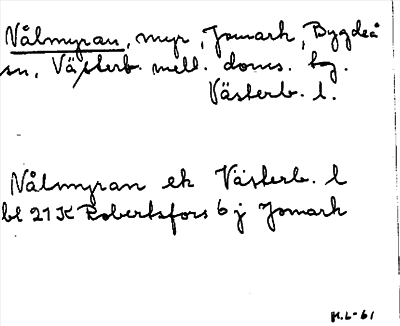 Nålmyran, myr, Jomark, Bygdeå
sn, Västerb. mell. doms. hg.
Västerb. l.
Nålmyran ek Västerb. l
bl 21K Robertsfors 6 j Jomark
M.L-61